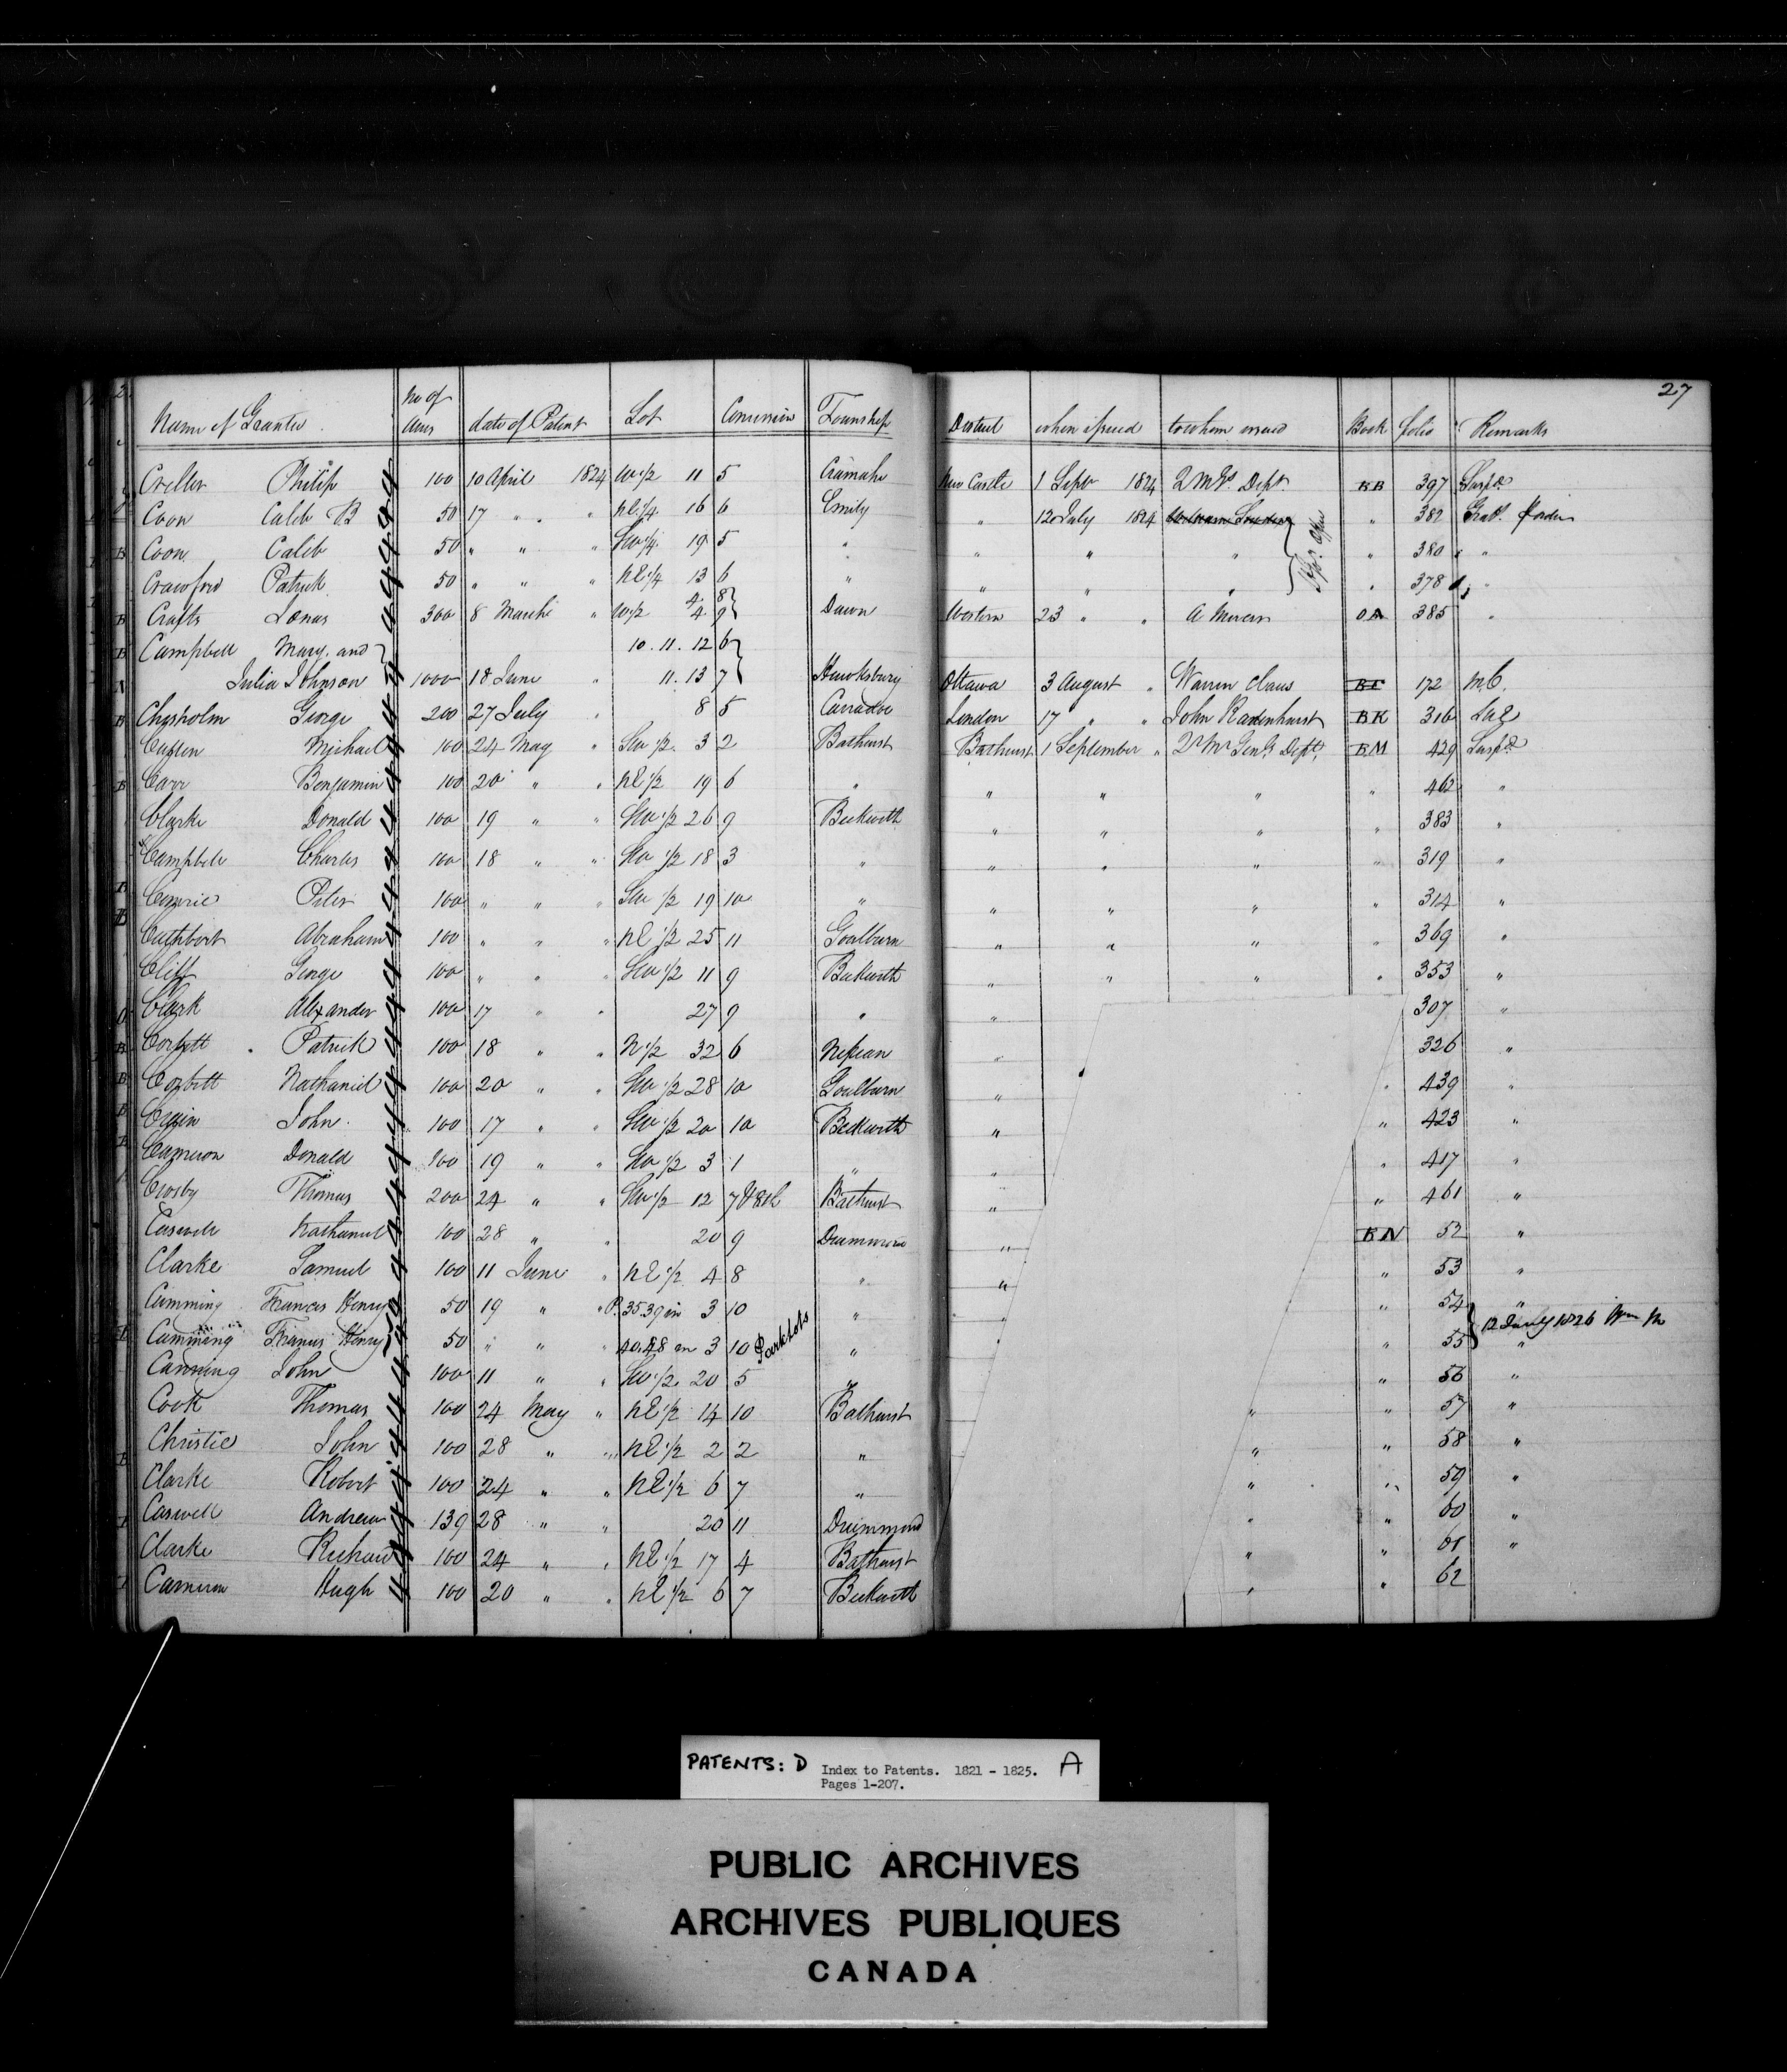 27
Name of Grantee No of Acres date of Patent Lot Concession Township District when issued to whom issued Book folio Remarks
Crellor Philip 100 10 April 1824 W 1/2 11 5 Cramahe New Castle 1 Sept 1824 2 M G. Dept. 397 Suspd.
Coon Caleb B 50 17 " " NE 1/4 16 6 Emily " 12 July 1824 " 382
Coon Caleb 50 " " " SW 1/4 19 5 " " " " " 380 " "
Crawford Patrick 50 " " " NE 1/4 13 6 " " " " " 378 "
Crafts 300 8 March " W 1/2 4. 8 4 9 Dawn Western 23 " " A Mercer 385 "
Campbell Mary. and 10. 11. 12 6
Julia Johnson 1000 18 June " 11. 13 7 Hawksbury Ottawa 3 August " Warren Claus 172 M.C.
Chysholm George 200 27 July " 8 5 Carradoc London 17 " " John Radenhurst BK 316
Michael 100 24 May " SW 1/2. 3 2 Bathurst Bathurst 1 September " 2r Mr Genls Dept, BM 429 Suspd
Carr Benjamin 100 20 " " NE 1/2 19 6 " " " " " 462 "
Clarke Donald 100 19 " " SW 1/2 26 9 Beckwith " " " " 383 "
Campbell Charles 100 18 " " SW 1/2 18 3 " " " " " 319 "
Comrie Peter 100 " " " SW 1/2 19 10 " " " " " 314 "
Cuthbert Abraham 100 " " " NE 1/2 25 11 Goulburn " " " " 369 "
Cliff George 100 " " " SW 1/2 11 9 Beckwith " " " " 353 "
Clark Alexander 100 17 " " 27 9 " " 307 "
Corbett Patrick 100 18 " " N 1/2 32 6 Nepean " 326 "
Corbett Nathaniel 100 20 " " SW 1/2 28 10 Goulburn " " 439 "
John 100 17 " " SW 1/2 20 10 Beckwith " " 423 "
Cameron Donald 100 19 " " SW 1/2 3 1 " " " 417 "
Crosby Thomas 200 24 " " SW 1/2 12 7 & 8th Bathurst " " 461 "
Caswell Nathaniel 100 28 " " 20 9 Drummond " BN 52 "
Clarke Samuel 100 11 June " NE 1/2 4 8 " " " 53 "
Cumming Francis Henry 50 19 " " P. 35.39 in 3 10 " " " 54 "
Cumming Francis Henry 50 " " " 40.48 in 3 10 Park Lots " " 55 " 12 July 1826
Canning John 100 11 " " SW 1/2. 20 5 " " 56 "
Cook Thomas 100 24 May " NE 1/2 14 10 Bathurst " " 57 "
Christie John 100 28 " " NE 1/2 2 2 " " " 58 "
Clarke Robert 100 24 " " NE 1/2 6 7 " " " 59 "
Caswell Andrew 139 28 " " 20 11 Drummond " " 60 "
Clarke Richard 100 24 " " NE 1/2 17 4 Bathurst " " 61 "
Cameron Hugh 100 20 " " NE 1/2 6 7 Beckwith " " 62
PATENTS: D Index to Patents. 1821 - 1825. A
Pages 1-207.
PUBLIC ARCHIVES
ARCHIVES PUBLIQUES
CANADA